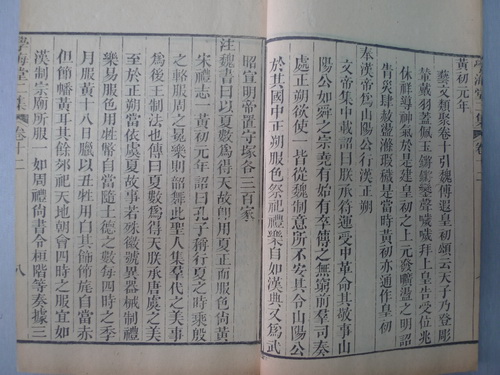 黃初元年
藝文類聚卷十引魏傅遐皇初頌云天子乃登彫
輦戴羽蓋佩玉鏘鏘鸞聲噦噦拜上皇告受位兆
休祥導神氣於是建皇當之上元發曠盪之明詔
滌瑕穢時黃初亦通作皇初
奉漢帝為山陽公行漢正朔
文帝集中載詔曰朕承符運受中革命其敬事山
陽公如舜之宗堯有始有卒傳之無窮前羣司奏
處正朔欲使一皆從魏制意所不安其令山陽公
於其國中正朔服色祭祀禮樂自如漢典又為武
昭宣明帝置守塚各三百家
注魏書曰以夏數為得天故即用夏正而服色尚黃
宋禮志一黃初元年詔曰孔子稱行夏之時乘殷
之輅服周之冕樂則韶舞此聖人集羣代之美事
為後王制法也傳曰夏數為得天朕承唐虞之美
至於正朔當依虞夏故事若殊徽號異器械制禮
樂易服色用牲幣自當隨土德之數每四時之季
月服黃十八日臘以丑牲用白其飾節旄自當赤
但節幡黃耳其餘郊祀天地朝會四時之服宜如
漢制宗廟所服一如周禮尚書令桓階等奏據三
學海堂二集 卷十二 八